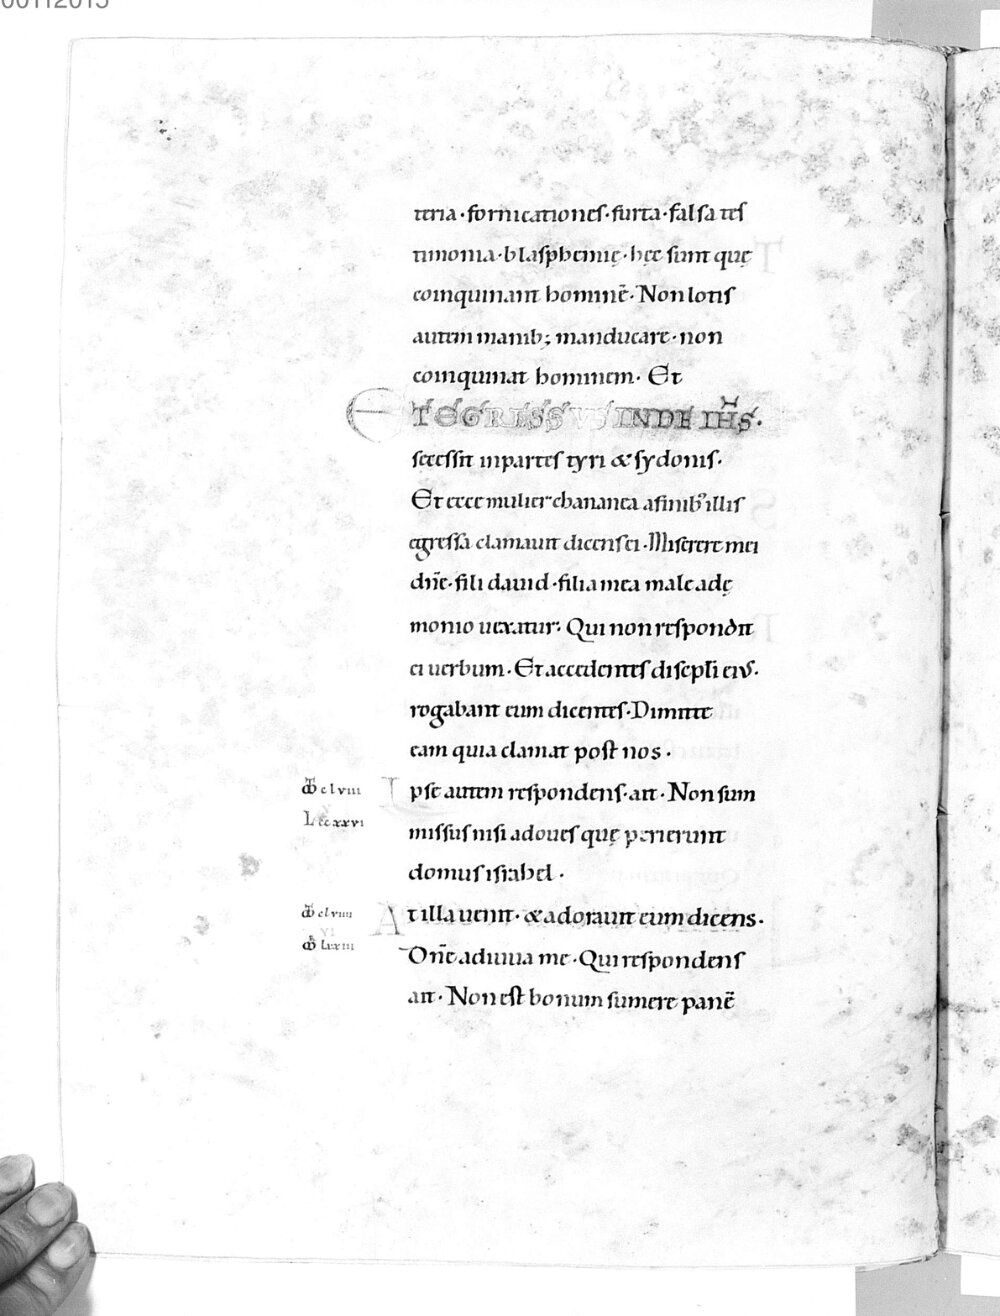 00112015
teria · fornicationes · furta · falsa tes
timonia · blasphemię · hęc sunt quę
coinquinant hominē · Non lotis
autem manib; manducare · non
coinquinat hominem · Et
ET EGRESSUS INDE IHS̄ ·
secessit in partes tyri & sydonis ·
Et ecce mulier chananea a finib' illis
egressa clamauit dicens ei · Miserere mei
dn̄e · fili dauid · filia mea male a dę
monio uexatur · Qui non respondit
ei uerbum · Et accedentes discipli eius ·
rogabant eum dicentes · Dimitte
eam quia clamat post nos ·
M̄ clviii Ipse autem respondens · ait · Non sum
missus nisi ad oues quę perierunt
domus israhel ·
M̄ clviiii At illa uenit · & adorauit eum dicens ·
Dn̄e adiuua me · Qui respondens
ait · Non est bonum sumere panē